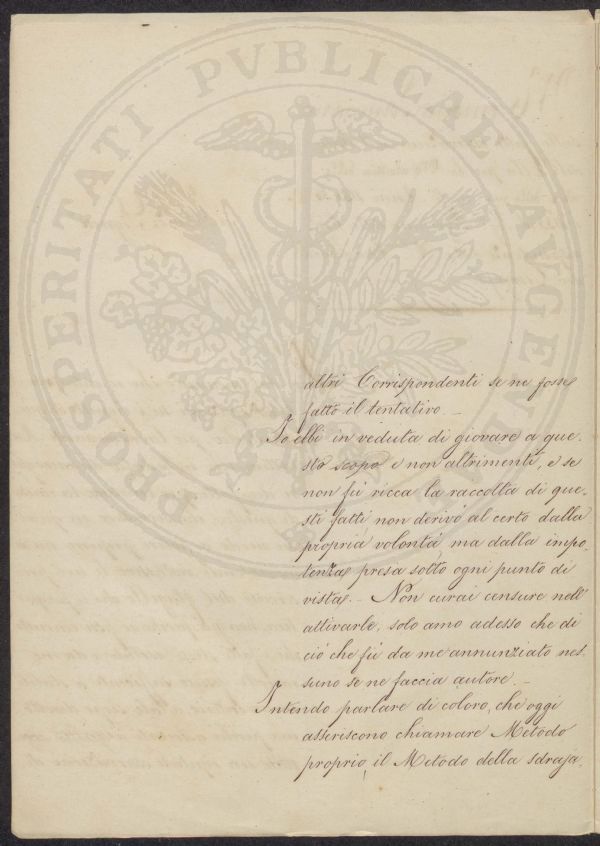 PROSPERITATI PVBLICAE AVGEN
altri Corrispondenti se ne fosse
fatto il tentativo. _
Io ebbi in veduta di giovare a que-
sto scopo e non altrimenti, e se
non fù ricca la raccolta di que-
sti fatti, non derivò al certo dalla
propria volontà, ma dalla impo-
tenza presa sotto ogni punto di
vista. _ Non curai censure nell'
attivarle, solo amo adesso che di
ciò che fù da me annunziato nes-
suno se ne faccia autore. _
Intendo parlare di coloro, che oggi
asseriscono chiamare Metodo
proprio, il Metodo della sdraja-